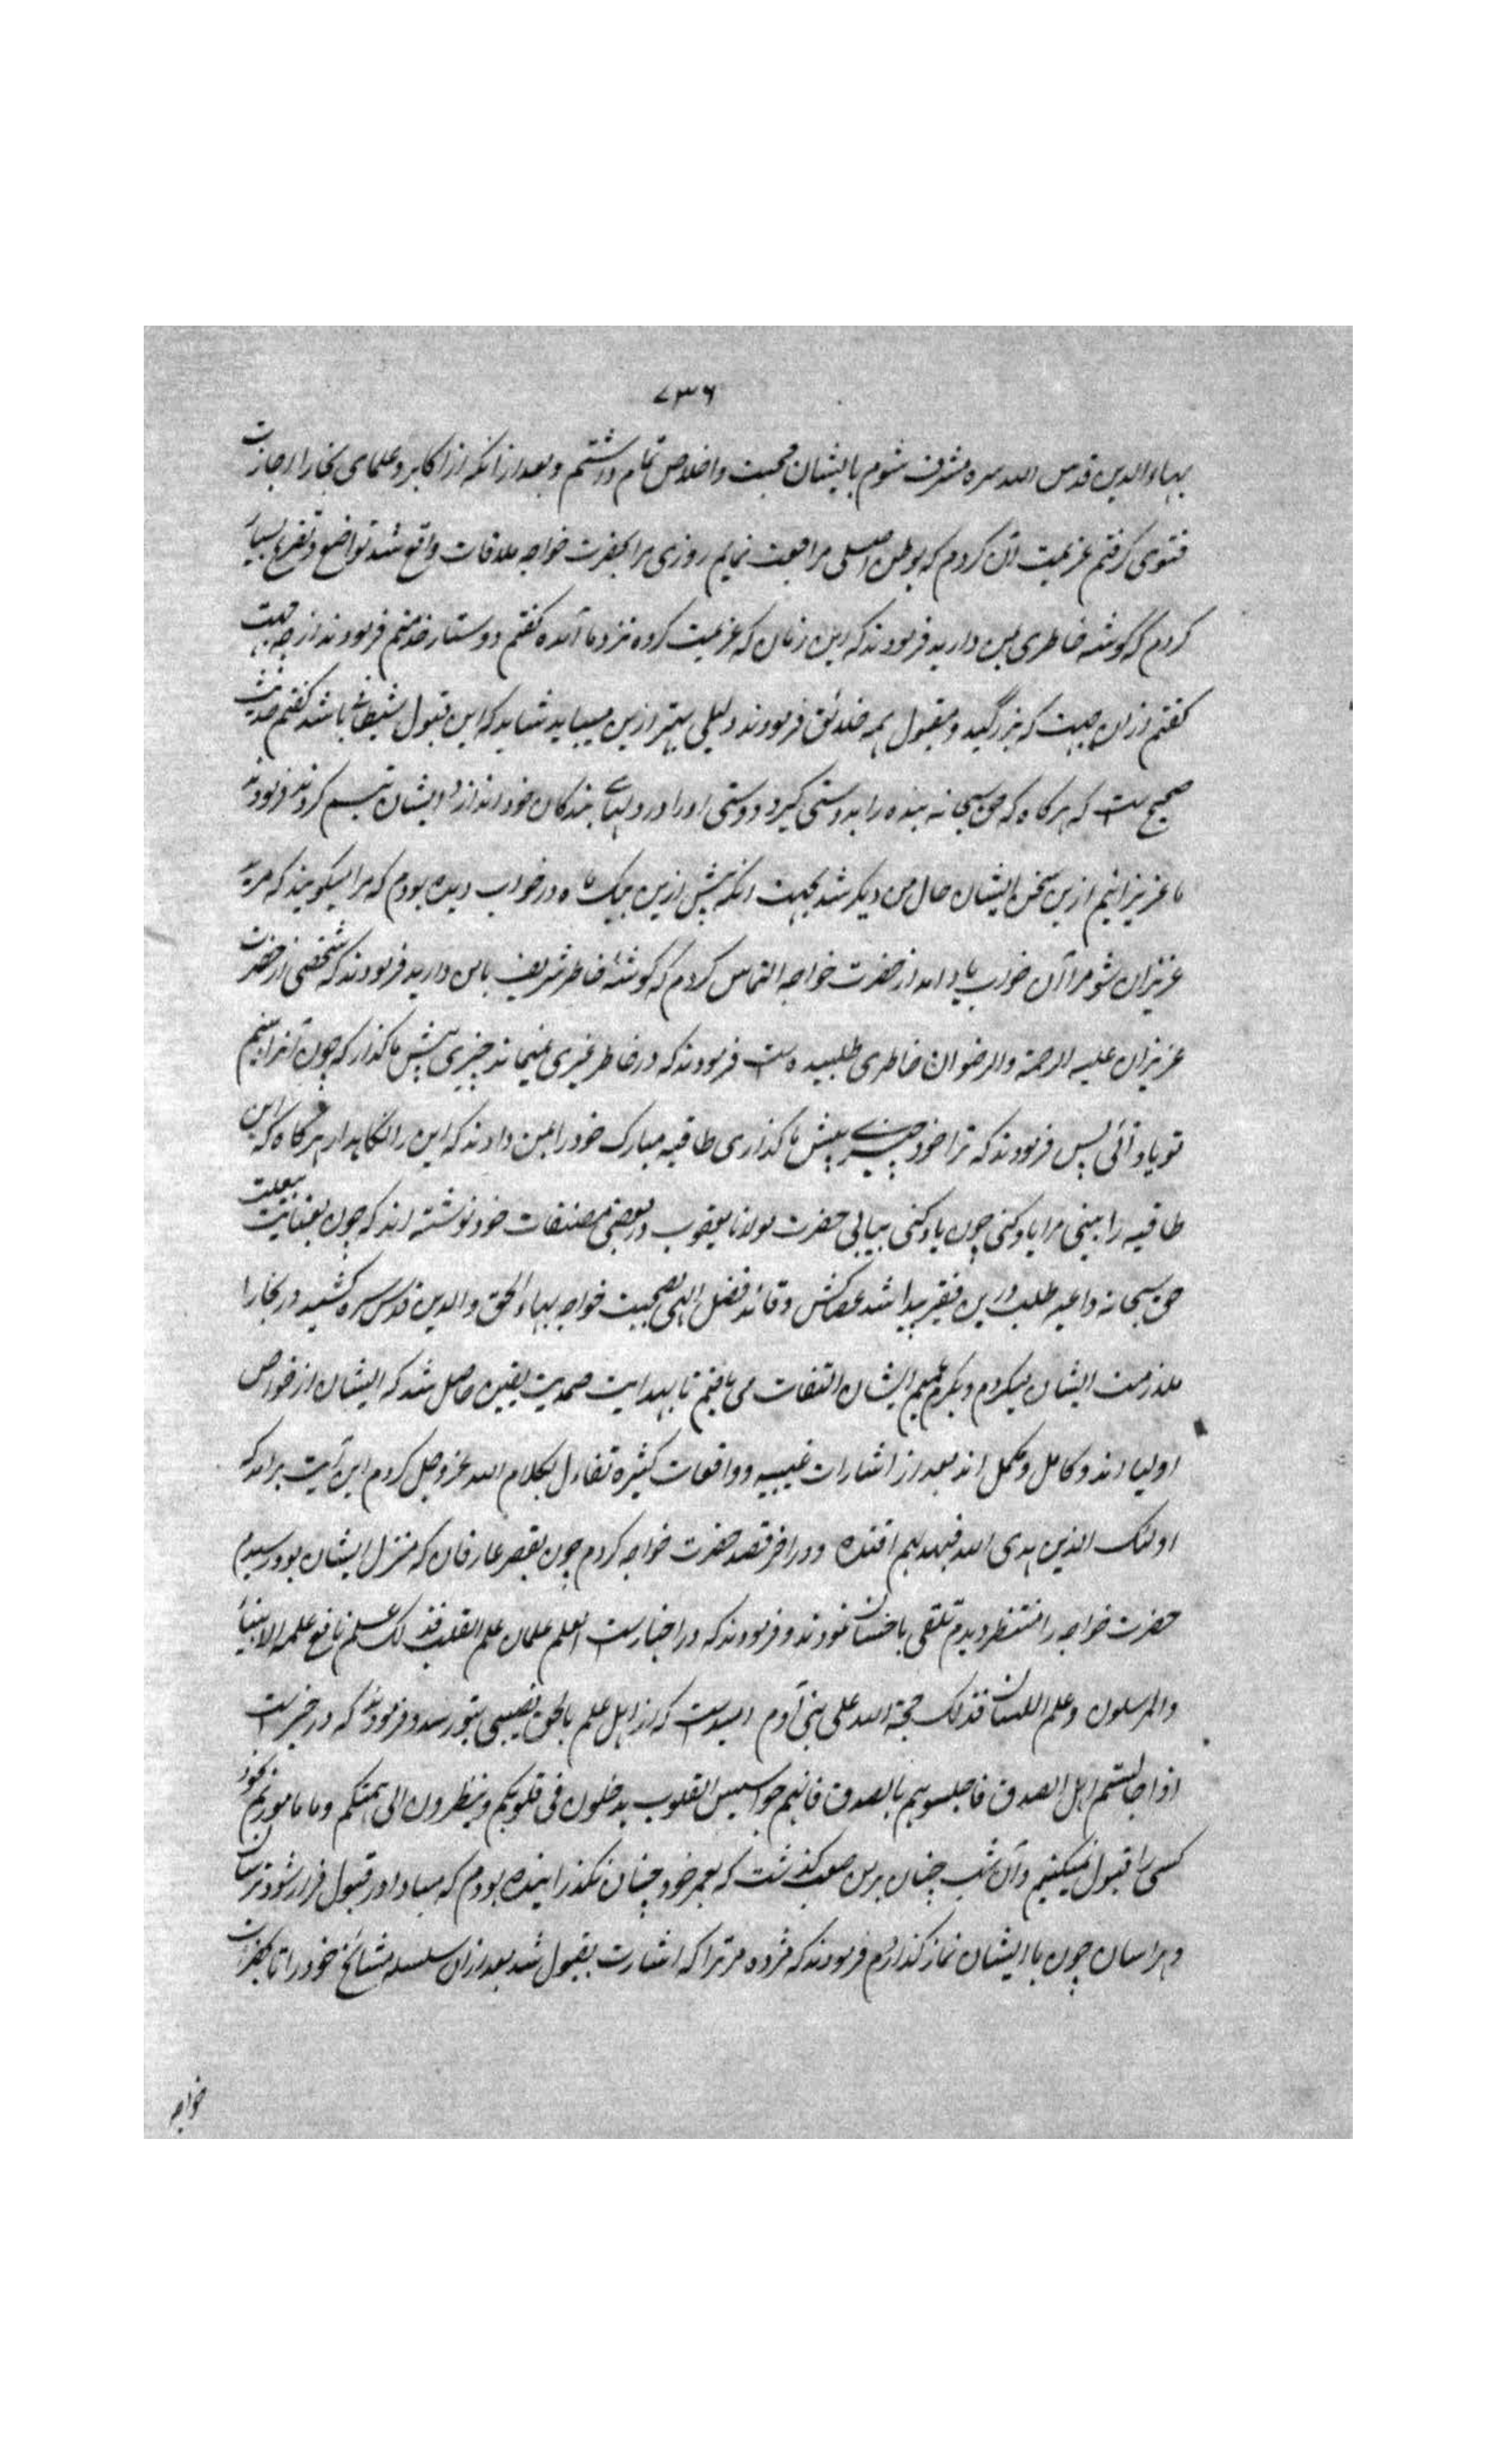 ۷۳۶
بهاءالدین قدس الله سره مشرف شوم بایشان محبت و اخلاص تمام داشتم و بعد ازانکه از اکابر و علمای بخارا اجازت
فتوی کرفتم عزیمت آن کردم که بوطن اصلی مراجعت نمایم روزی مرا بحضرت خواجه ملاقات واقع شد تواضع و تضرع بسیار
کردم که کوشه خاطری بمن دارید فرمودند که این زمان که عزیمت کرده نزد ما آمده کفتم دوستدار خدمتم فرمودند از چه جهت
کفتم ازان جهت که بزرکید و مقبول همه خلائق فرمودند دلیلی بهتر ازین میباید شاید که این قبول شیطانی باشد کفتم حدیث
صحیح است که هرکاه که حق سبحانه بنده را بدوستی کیرد دوستی او را در دلهاے بندکان خود اندازد ایشان تبسم کردند فرمودند
ما عزیزانیم ازین سخن ایشان حال من دیکر شد بجهت انکه پیش ازین بیک ماه در خواب دیده بودم که مرا میکویند که مرید
عزیزان شو مرا آن خواب یاد امد از حضرت خواجه التماس کردم که کوشهٔ خاطر شریف بامن دارید فرمودند که شخصی از حضرت
عزیزان علیه الرحمة والرضوان خاطری طلبیده است فرمودند که در خاطر غیری نمیماند چیزی پیش ما کذار که چون آنرا بینم
تو یاد آئی پس فرمودند که ترا خود چیزے نیست پیش ما کذاری طاقیه مبارک خود را بمن دادند که این را نکاهدار هرکاه که این
طاقیه را بینی مرا یاد کنی چون یاد کنی بیابی حضرت مولانا یعقوب در بعضی مصنفات خود نوشته اند که چون بعنایت بیعلت
حق سبحانه داعیه طلب درین فقیر پیدا شد عصاکش و قائد فضل الهی بصحبت خواجه بهاءالحق والدین قدس سره کشید در بخارا
ملازمت ایشان میکردم و بکرم عمیم ایشان التفات می یافتم تا بهدایت صمدیت یقین حاصل شد که ایشان از خواص
اولیا اند و کامل و مکمل اند بعد از اشارات غیبیه و واقعات کثیره تفاءل بکلام الله عز و جل کردم این آیت برامد که
اولئک الذین هدی الله فبهدیهم اقتده و در اخر قصد حضرت خواجه کردم چون بقصر عارفان که منزل ایشان بود رسیدم
حضرت خواجه را منتظر دیدم تلقی باحسان نمودند و فرمودند که در اخبارست العلم علمان علم القلب فذلک علم نافع علمه الانبیاء
والمرسلون وعلم اللسان فذلک حجة الله علی بنی آدم امیدست که از اهل علم بالحق نصیبی بتو رسد و فرمودند که در خبرست
اذا جالستم اهل الصدق فاجلسوهم بالصدق فانهم جواسیس القلوب یدخلون فی قلوبکم وینظرون الی هممکم وما ماموریم بخود
کسی را قبول نمیکنیم وآن شب چنان برمن صعب کذشت که بعمر خود چنان نکذرانیده بودم که مبادا در قبول فراز شود ترسان
و هراسان چون با ایشان نماز کذاردم فرمودند که مژده مر ترا که اشارت بقبول شد بعد ازان سلسله مشائخ خود را تا بحضرت
خواجه